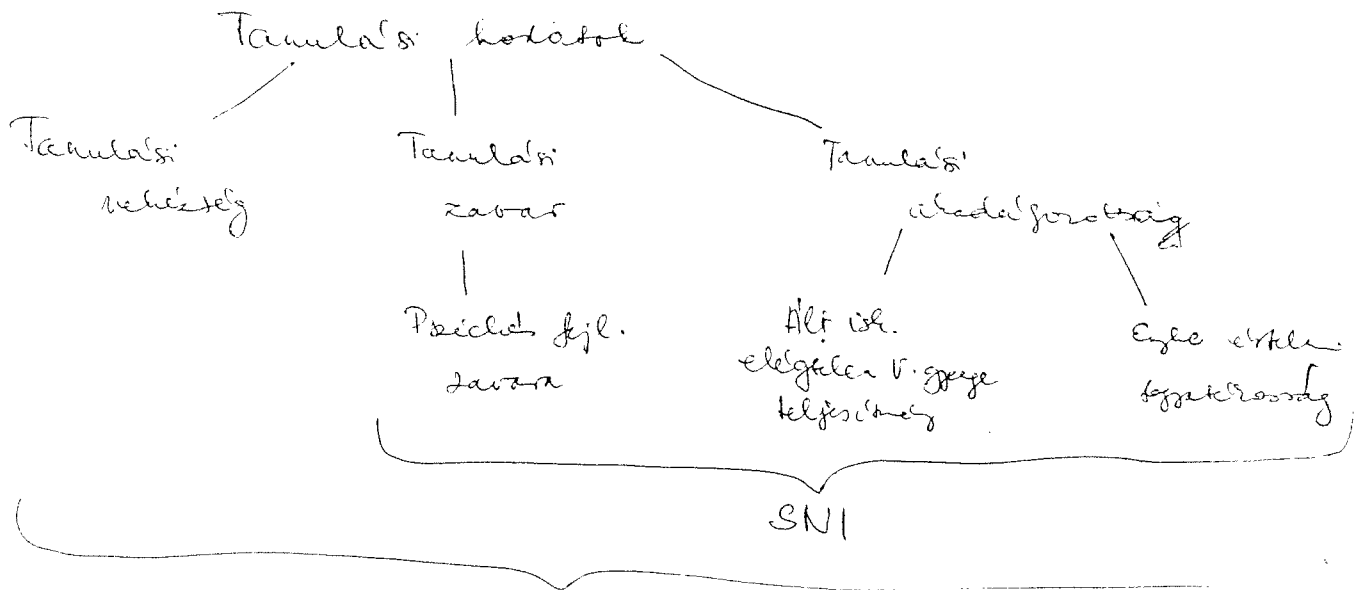 Tanulási korlátok
Tanulási
nehézség
Tanulási
zavar
Tanulási
akadályozottság
Pszichés fejl.
zavara
Ált isk.
elégtelen v. gyenge
teljesítmény
Enyhe értelmi
fogyatékosság
SNI